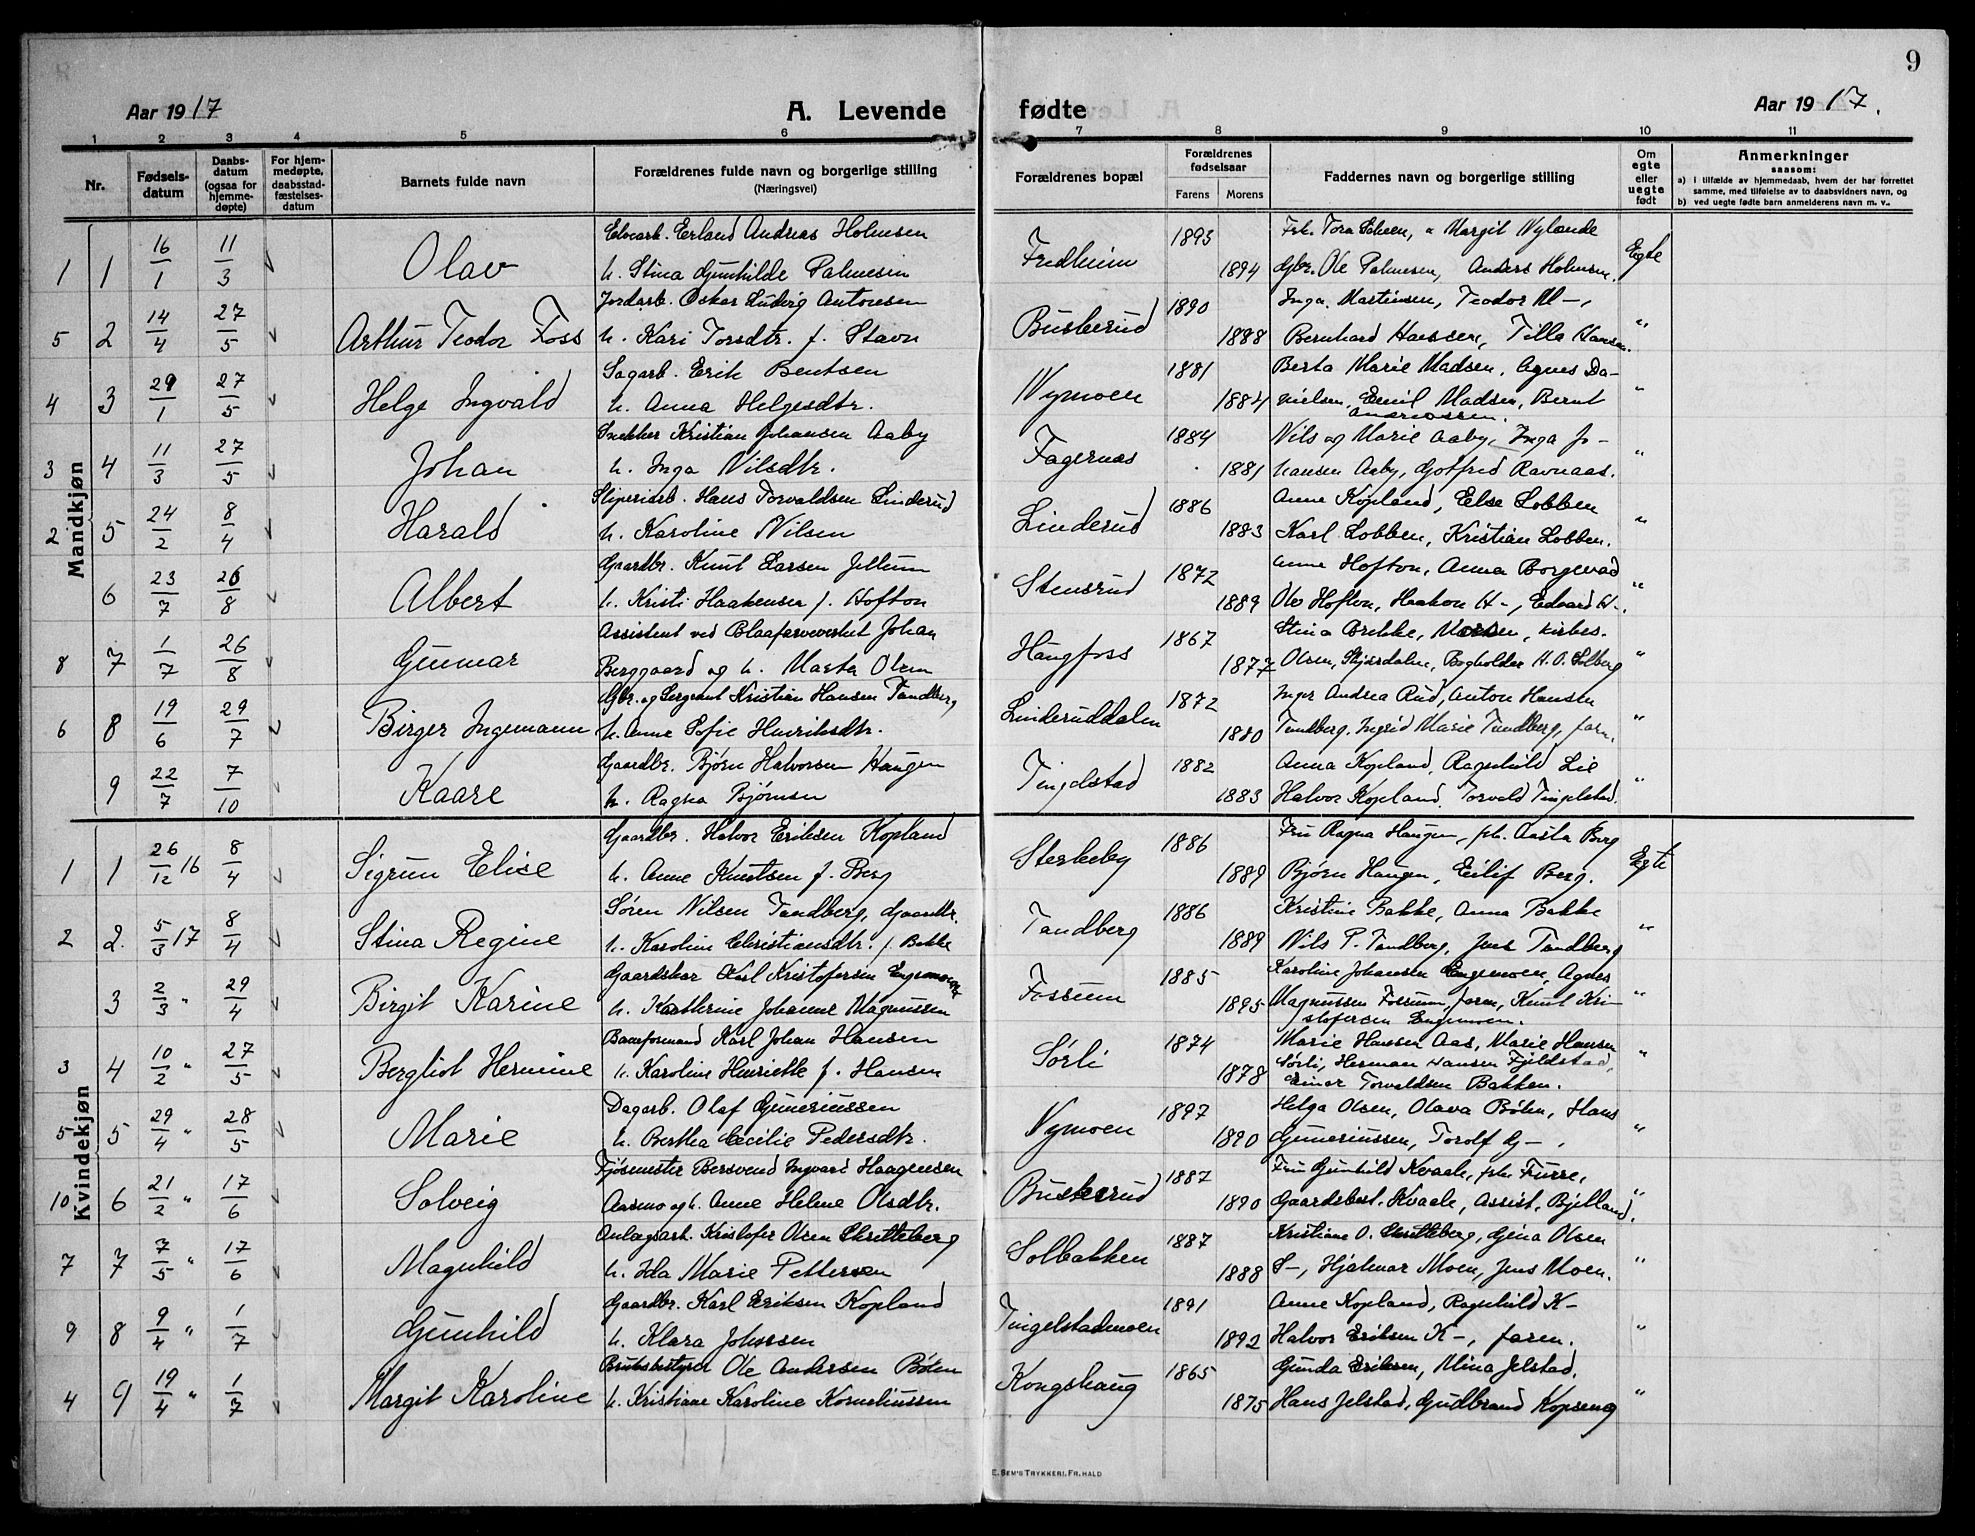 9
Aar 1917 A. Levende fødte Aar 1917.
1 2 3 4 5 6 7 8 9 10 11
Nr. Fødselsdatum Daabsdatum (ogsaa for hjemmedøpte) For hjemmedøpte, daabsstadfæstelsesdatum Barnets fulde navn Forældrenes fulde navn og borgerlige stilling (Næringsvei) Forældrenes bopæl Forældrenes fødselsaar Farens Morens Faddernes navn og borgerlige stilling Om egte eller uegte født Anmerkninger saasom:
a) i tilfælde av hjemmedaab, hvem der har forrettet samme, med tilføielse av to daabsvidners navn, og
b) ved uegte fødte barn anmelderens navn m. v..
Mandkjøn
Elvearb. Erland Andreas Holmsen 1893 Frk. Tora Scheen, " Margit Nylande
1 1 16/1 11/3 Olav h. Stina Gunhilde Palmesen Fredheim 1894 Gbr. Ole Palmesen, Anders Holmsen. Egte
Jordarb. Oskar Ludvig Antonsen 1890 Inga Martinsen, Teodor M-,
5 2 14/4 27/5 Arthur Teodor Foss h. Kari Torsdtr. f. Stavn Buskerud 1898 Bernhard Hansen, Tilla Hansen. "
Sagarb. Erik Bentsen 1881 Berta Marie Madsen, Agnes Da-
4 3 29/1 27/5 Helge Ingvald h. Anna Helgesdtr. Nymoen 1884 nielsen, Emil Madsen, Bernt "
Andreassen.
Snekker Kristian Johansen Aaby 1884 Nils og Marie Aaby, Inga Jo-
3 4 11/3 27/5 Johan h. Inga Nilsdtr. Fagernas 1881 hansen Aaby, Gotfred Ravnaas. "
Sliperiarb. Hans Torvaldsen Linderud 1886 Anne Kopland, Else Lobben
2 5 24/2 8/4 Harald h. Karoline Nilsen Linderud 1883 Karl Lobben, Kristian Lobben. "
Gaardbr. Knut Larsen Jellum 1872 Anne Hofton, Anna Borgevad
6 23/7 26/8 Albert h. Kristi Haakensen f. Hofton Stensrud 1889 Ole Hofton, Haakon H-, Edvard H-. "
Assistent ved Blaafarveverket Johan 1867 Stina Brekke, kirkes.
8 7 1/7 26/8 Gunnar Berggaard og h. Marta Olsen Haugfoss 1877 Olsen, Skjørdalen, Bogholder H. O. Solberg "
Gbr. og Sergeant Kristian Hansen Tandberg 1872 Inger Andrea Rud, Anton Hansen
6 8 19/6 29/7 Birger Ingemann h. Anne Sofie Henriksdtr. Linderuddalen 1880 Tandberg, Ingrid Marie Tandberg, faren. "
Gaardbr. Bjørn Halvorsen Haugen 1882 Anna Kopland, Ragnhild Lie
9 22/7 7/10 Kaare h. Ragna Bjørnsen Tingelstad 1883 Halvor Kopland, Torvald Tingelstad. "
Kvindekjøn
Gaardbr. Halvor Eriksen Kopland 1886 Fru Ragna Haugen, frk. Aasta Berg
1 1 26/12 16 8/4 Sigrun Elise h. Anne Knutsen f. Berg Sterkeby 1889 Bjørn Haugen, Eilif Berg. Egte
Søren Nilsen Tandberg, Gaardbr. 1886 Kristine Bakke, Anna Bakke
2 2. 5/3 17 8/4 Stina Regine h. Karoline Christiansdtr. f. Bakke Tandberg 1889 Nils P. Tandberg, Jens Tandberg "
Gaardskar Karl Kristofersen Engemoen 1885 Karoline Johansen Engemoen, Agnes
3 2/3 " 29/4 Birgit Karine h. Kathrine Johanne Magnussen Fossum 1895 Magnussen Fossum, faren, Knut Kri- "
stofersen Engemoen.
Baneformand Karl Johan Hansen 1874 Marie Hansen Aas, Marie Hansen
3 4 10/2 " 27/5 Bergliot Hermine h. Karoline Henriette f. Hansen Sørli 1878 Sørli, Herman Hansen Fjeldstad, "
Einar Torvaldsen Bakken.
Dagarb. Olaf Guneriussen 1897 Helga Olsen, Olava Bølen, Hans
5 5 29/4 " 28/5 Marie h. Bertha Cecilie Pedersdtr. Nymoen 1890 Guneriussen, Torolf G-, "
Fjøsmester Bersvend Ingvard Haagensen 1887 Fru Gunhild Kvaale, frk. Furre,
10 6 21/2 " 17/6 Solveig Aasmo og h. Anne Helene Olsdtr. Buskerud 1890 Gaardsbest. Kvaale, Assist. Bjelland. "
Anlægsarb. Kristofer Olsen Skritteberg 1887 Kristiane O. Skritteberg, Gina Olsen
7 7 7/5 " 17/6 Magnhild h. Ida Marie Pettersen Solbakken 1888 S-, Hjalmar Moen, Jens Moen. "
Gaardbr. Karl Eriksen Kopland 1891 Anne Kopland, Ragnhild K-
9 8 9/4 " 1/7 Gunhild h. Klara Johnsen Tingelstadmoen 1892 Halvor Eriksen K-, faren. "
Bruksbestyrer Ole Andersen Bølen 1865 Gunda Eriksen, Mina Jelstad,
4 9 19/4 " 1/7 Margit Karoline h. Kristiane Karoline Korneliussen Kongshaug 1875 Hans Jelstad, Gudbrand Kopseng "
E. SEM'S TRYKKERI, FR.HALD